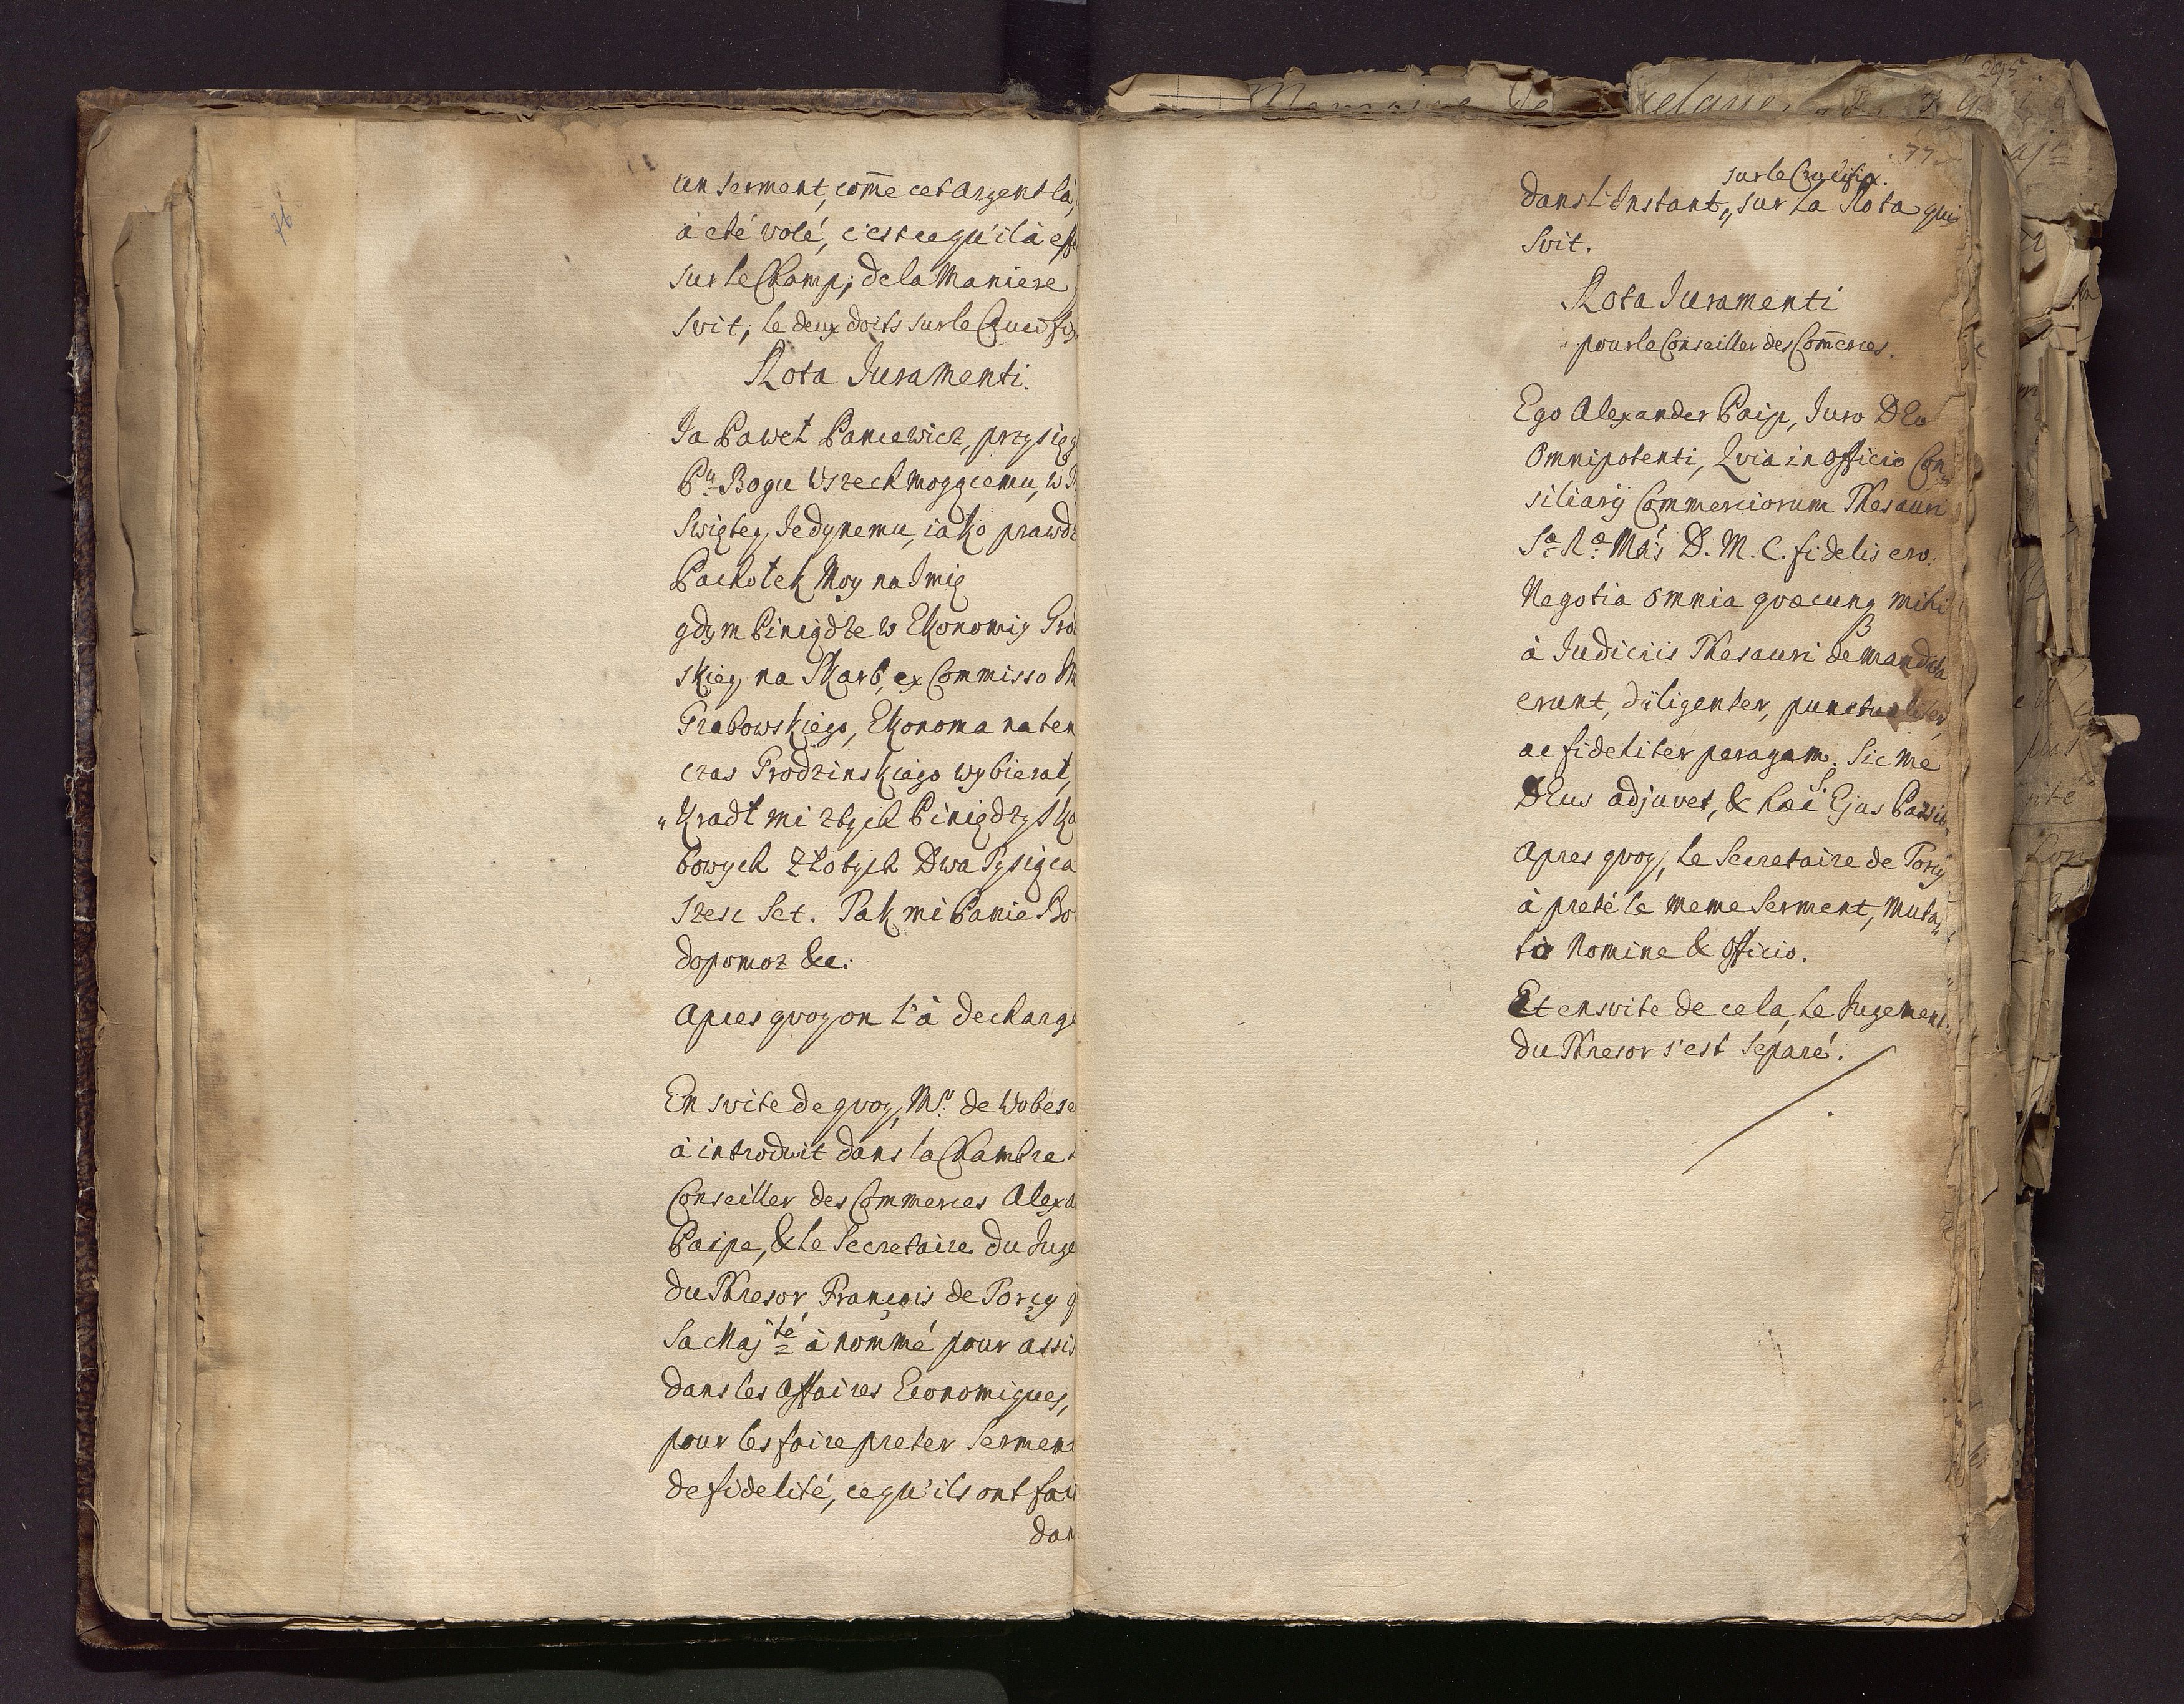 76
un serment, com̄e cet argent là,
à eté volé, c'est ce qu'il à eff
sur le Champ, de la Maniere
svit, le deux doits sur le Cruci fix
Rota Juramenti.
Ja Paweł Pancewicz, przysięg
Pu Bogu Wszechmogącemu, w T
Swiętey Jedynemu, iako prawdz
Pachołek Moy na Imię
gdym Piniądze w Ekonomiy Grod
skiey na Skarb, ex Commisso
Grabowskiego, Ekonoma na ten
czas Grodzinskiego wybierał,
„kradł mi ztych Piniędzy ska
bowych Złotych Dwa Tysiąca
szesc Set. Tak mi Panie Bo
dopomoz &c:
Apres qvoy on l'à decharg
En svite de qvoy, Mr. de Wobese
à introdvit dans la Chambre
Conseiller des Commerces Alexa
Paip, & le Secretaire du Juge
du Thresor, François de Torcy q
Sa Majté à nommé pour assis
dans les Affaires Economiques,
pour les faire preter Serment
de fidelité, ce qu'ils ont fai
dan
77
sur le Crucifix.
dans l'Instant„ sur la Rota qui
Svit.
Rota Juramenti
pour le Conseiller des Com̄erces.
Ego Alexander Paip, Juro DEo
Omnipotenti, Qvia in Officio Con
siliarij Commerciorum Thesauri
Sæ Ræ Mäs D. M. L. fidelis ero.
Negotia omnia qvæcunq mihi
à Judiciis Thesauri demandata
erunt, diligenter, punctualiter,
ac fideliter peragam. Sic me
DEus adjuvet, & hæc Ejus Passio„
Apres qvoy, le Secretaire de Torcy
à preté le meme Serment, Muta„
tis Nomine & Officio.
Et ensvite de cela, le Jugement
du Thresor s'est separé.